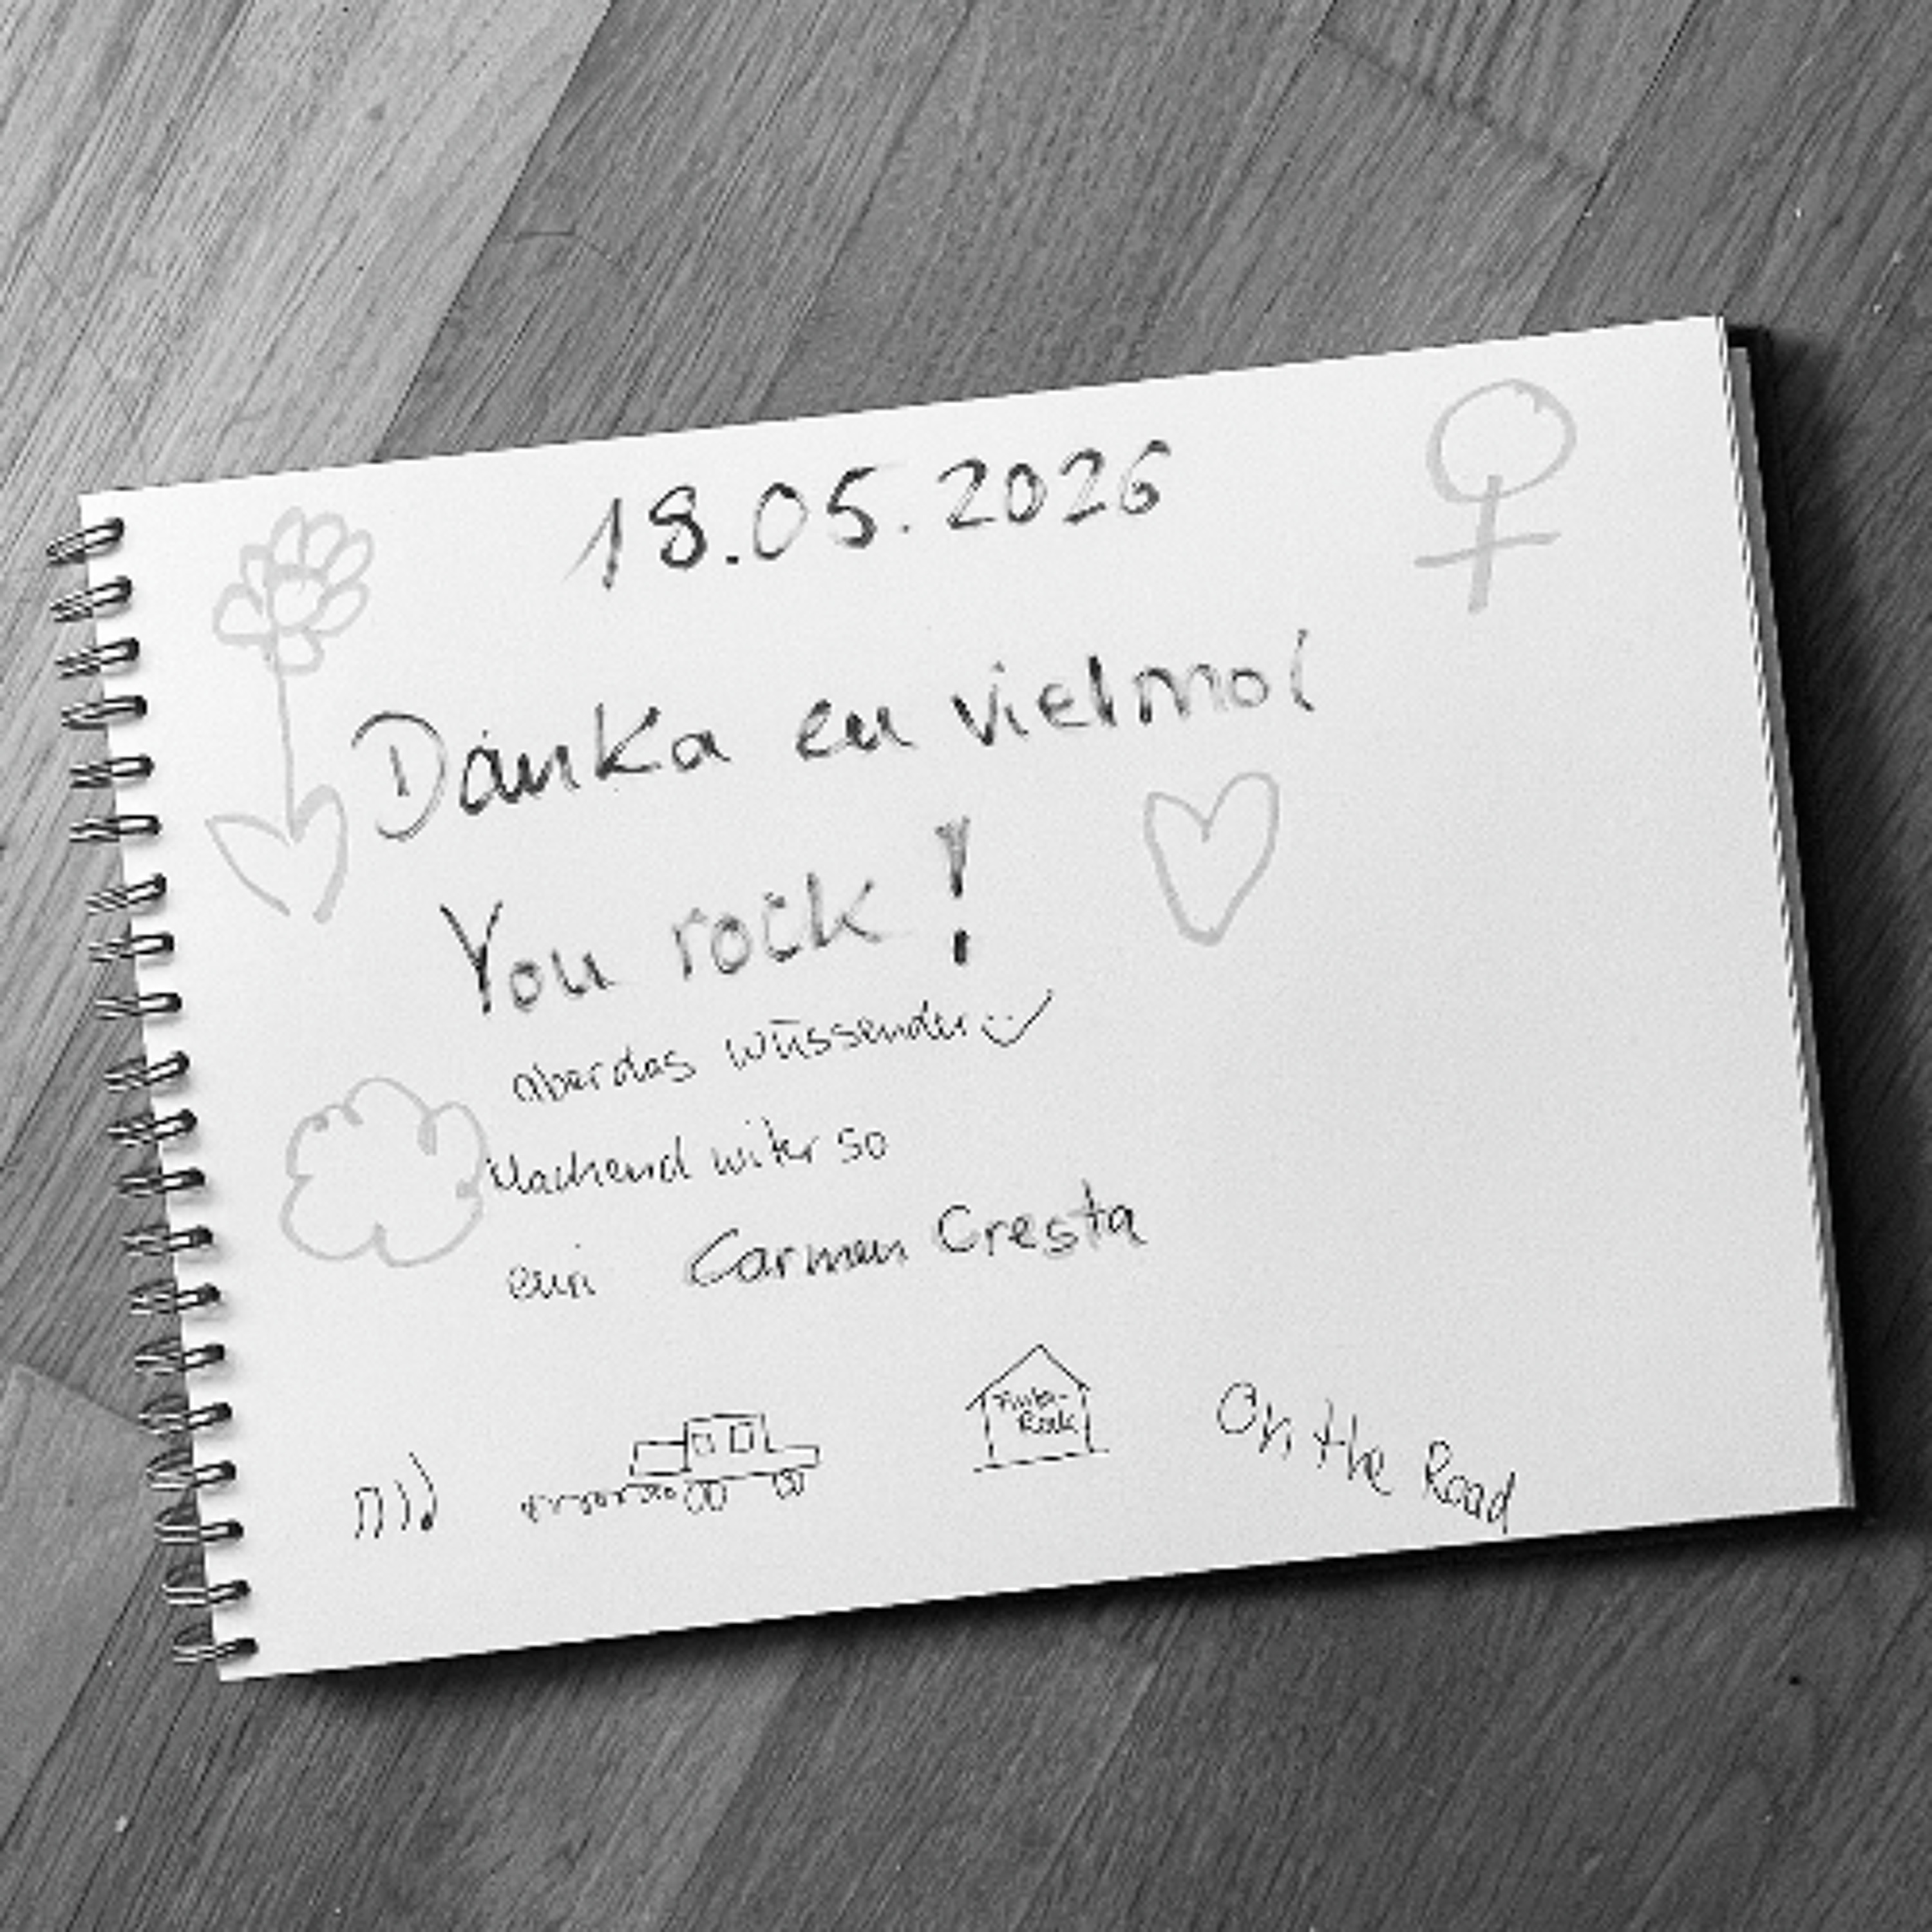 18.05.2026
Danka eu vielmol
You rock!
aber das wüssender
Machend witer so
eui Carmen Cresta
On the Road